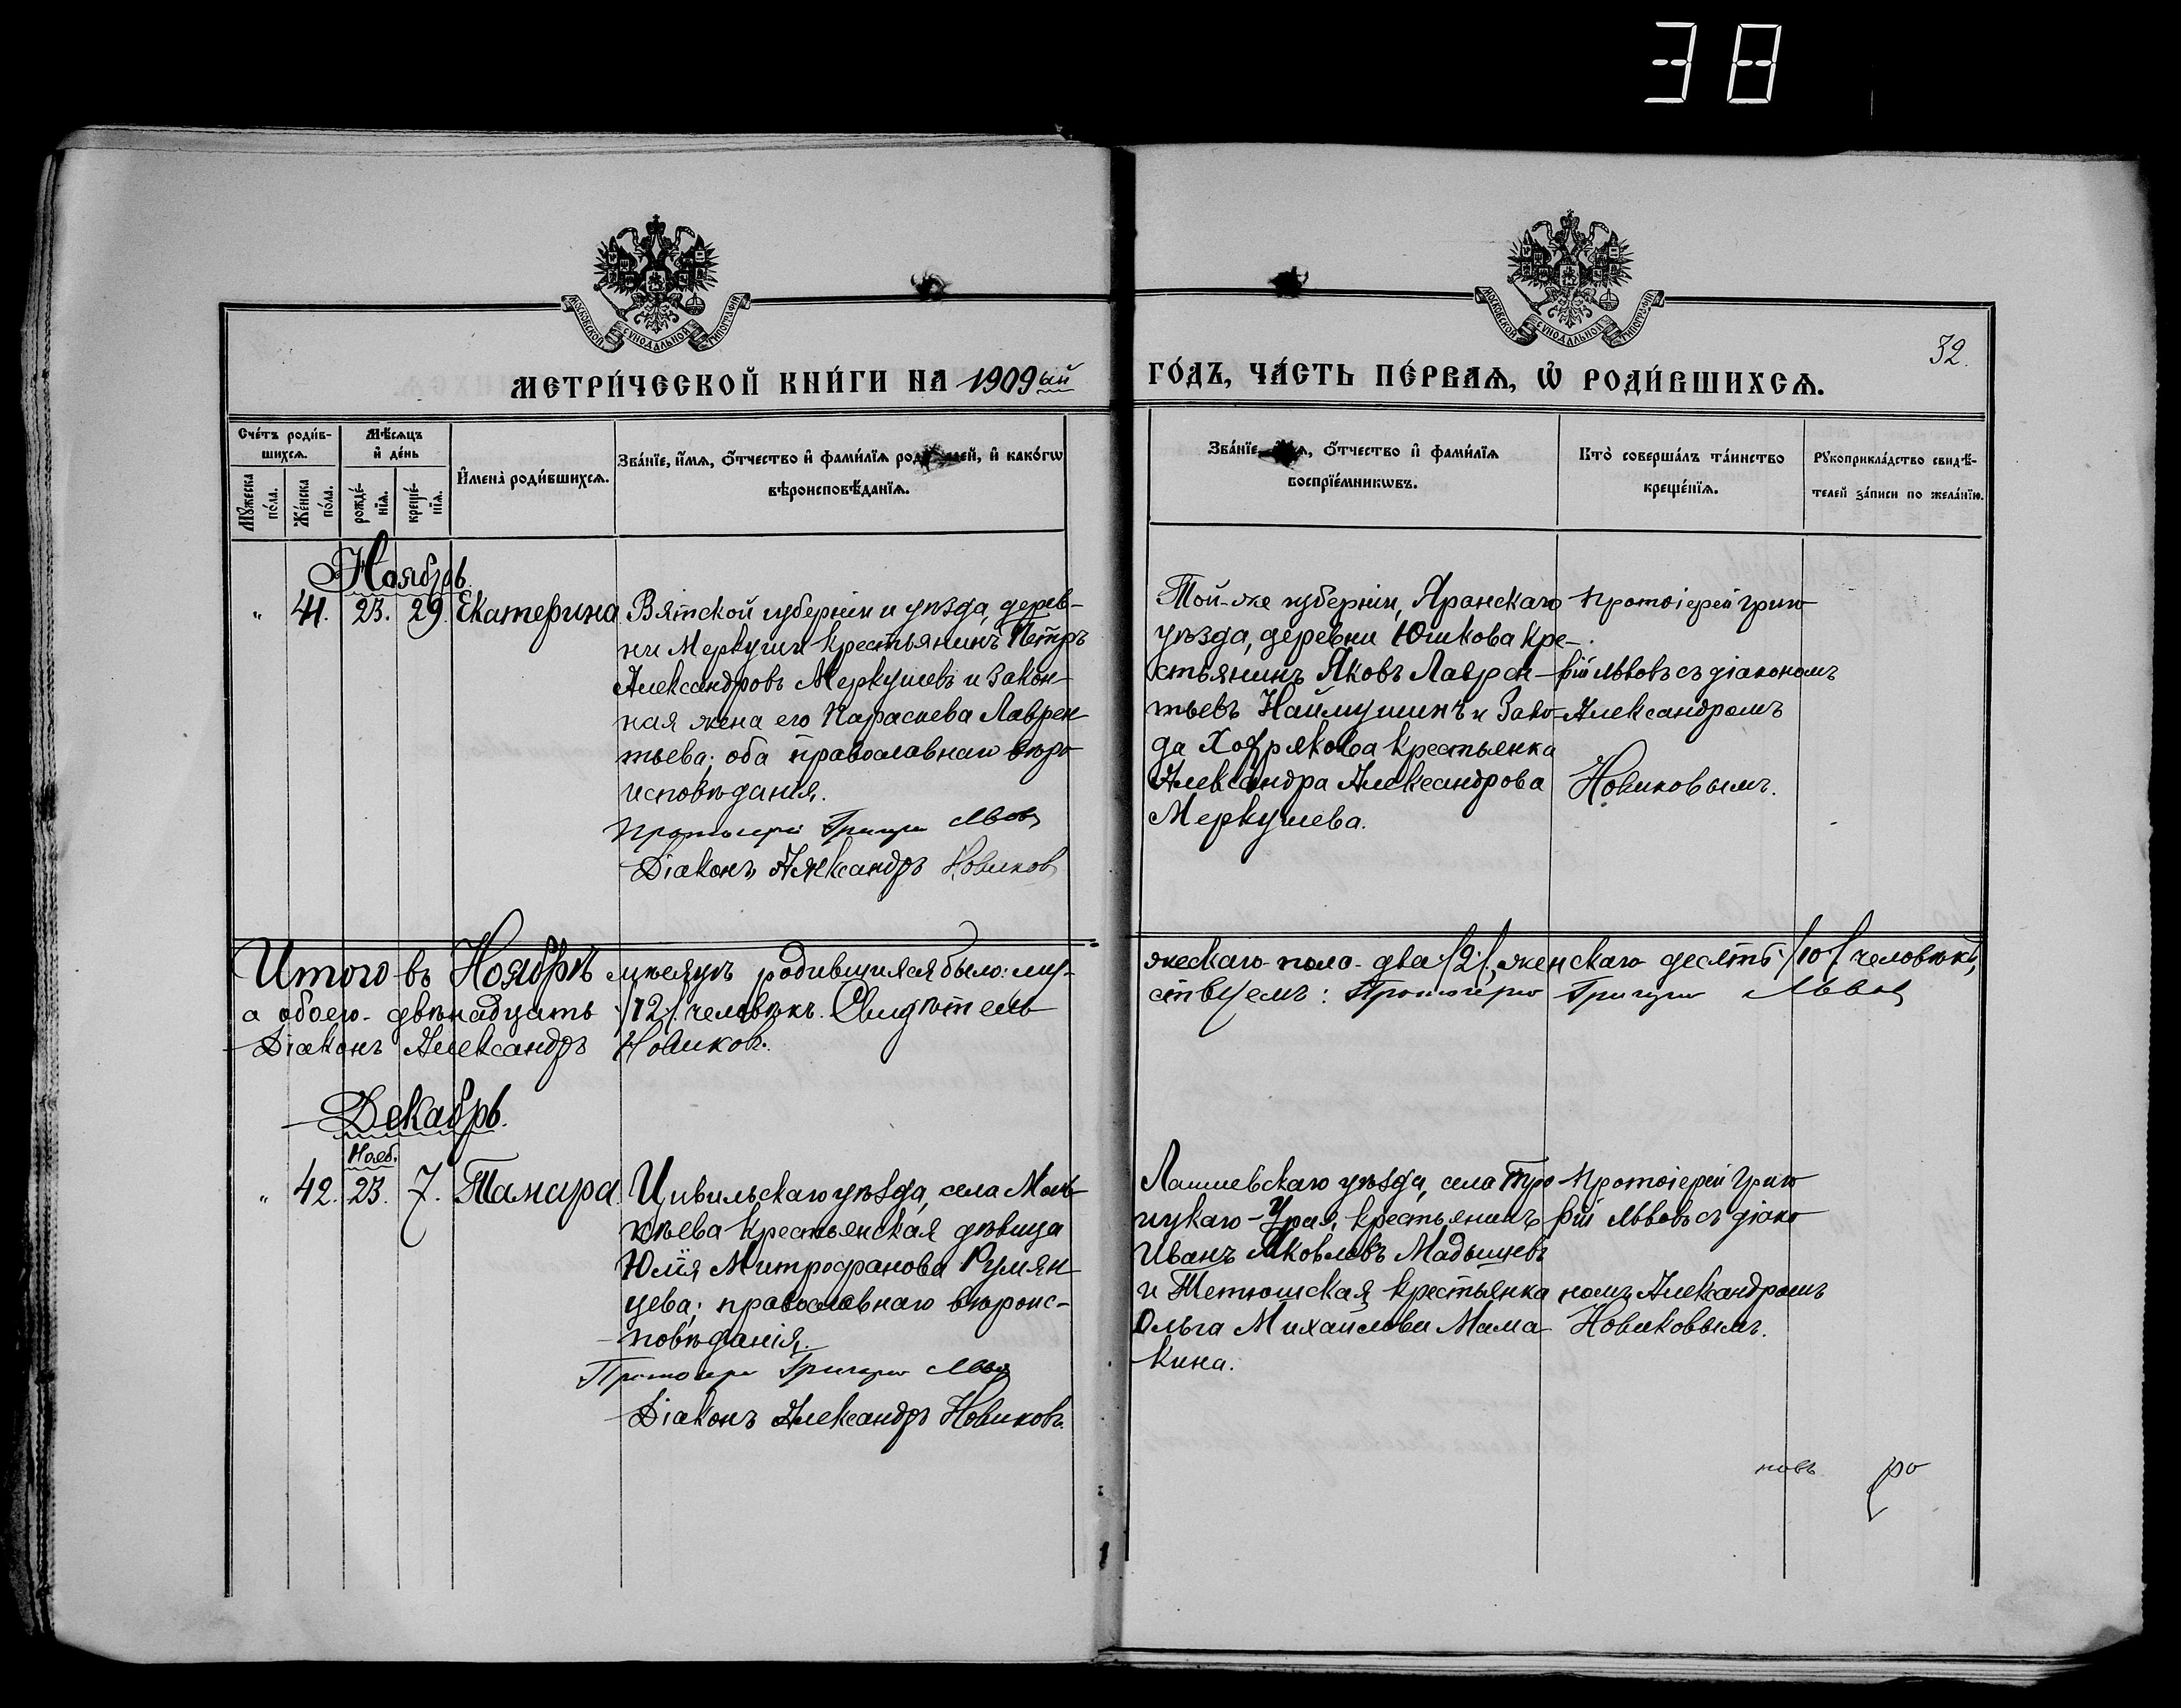 38
МОСКОВСКОЙ СѴНОДАЛЬНОЙ ТИПОГРАФІИ
МОСКОВСКОЙ СѴНОДАЛЬНОЙ ТИПОГРАФІИ
32.
МЕТРИ́ЧЕСКОЙ КНИ́ГИ НА 1909ый ГО́ДЪ, ЧА́СТЬ ПЕ́РВАѦ, Ѽ РОДИ́ВШИХСѦ.
Сче́тъ роди́в-
шихсѧ.
Мѣ́сѧцъ
и҆ де́нь
Мꙋ́жеска по́ла.
Же́нска по́ла.
рожде́-
нїѧ.
креще́-
нїѧ.
И҆мена̀ роди́вшихсѧ.
Зва́нїе, и҆́мѧ, ѻ҆́тчество и҆ фами́лїѧ род лей, и҆ како́гѡ
вѣроисповѣ́данїѧ.
Зва́нїе ѧ, ѻ҆́тчество и҆ фами́лїѧ
воспрїе́мникѡвъ.
Кто̀ соверша́лъ та́инство
креще́нїѧ.
Рꙋкоприкла́дство свидѣ́-
телей за́писи по жела́нїю.
Ноябрь
" 41. 23. 29. Екатерина
Вятской губерніи и уѣзда, дерев-
ни Меркуши крестьянинъ Петръ
Александровъ Меркушевъ и закон-
ная жена его Параскева Лаврен
тьева; оба православнаго вѣро
исповѣданія.
Протоіерей Григорій Львовъ
Діаконъ Александръ Новиковъ
Той-же губерніи, Яранскаго
уѣзда, деревни Юшкова кре-
стьянинъ Яковъ Лаврен-
тьевъ Наймушинъ и заво-
да Хохрякова крестьянка
Александра Александрова
Меркушева.
Протоіерей Григо
рій Львовъ съ діакономъ
Александромъ
Новиковымъ.
Итого въ Ноябрѣ мѣсяцѣ родившихся было: муж-
жескаго пола - два /2/, женскаго десять /10/ человѣкъ,
а обоего - двѣнадцать /12/ человѣкъ. Свидѣтель
ствуемъ: Протоіерей Григорій Львовъ
Діаконъ Александръ Новиковъ.
Декабрь.
Нояб.
" 42. 23. 7. Тамара.
Цивильскаго уѣзда, села
крестьянская дѣвица
Юлія Митрофанова Румян
цева; православнаго вѣроис-
повѣданія.
Протоіерей Григорій Львовъ
Діаконъ Александръ Новиковъ.
Лаишевскаго уѣзда, села Тро
ицкаго-Урая, крестьянинъ
Иванъ Яковлевъ Мадышевъ
и Тетюшская крестьянка
Ольга Михайлова Мама
кина.
Протоіерей Григо
рій Львовъ съ діако
номъ Александромъ
Новиковымъ.
новъ ро